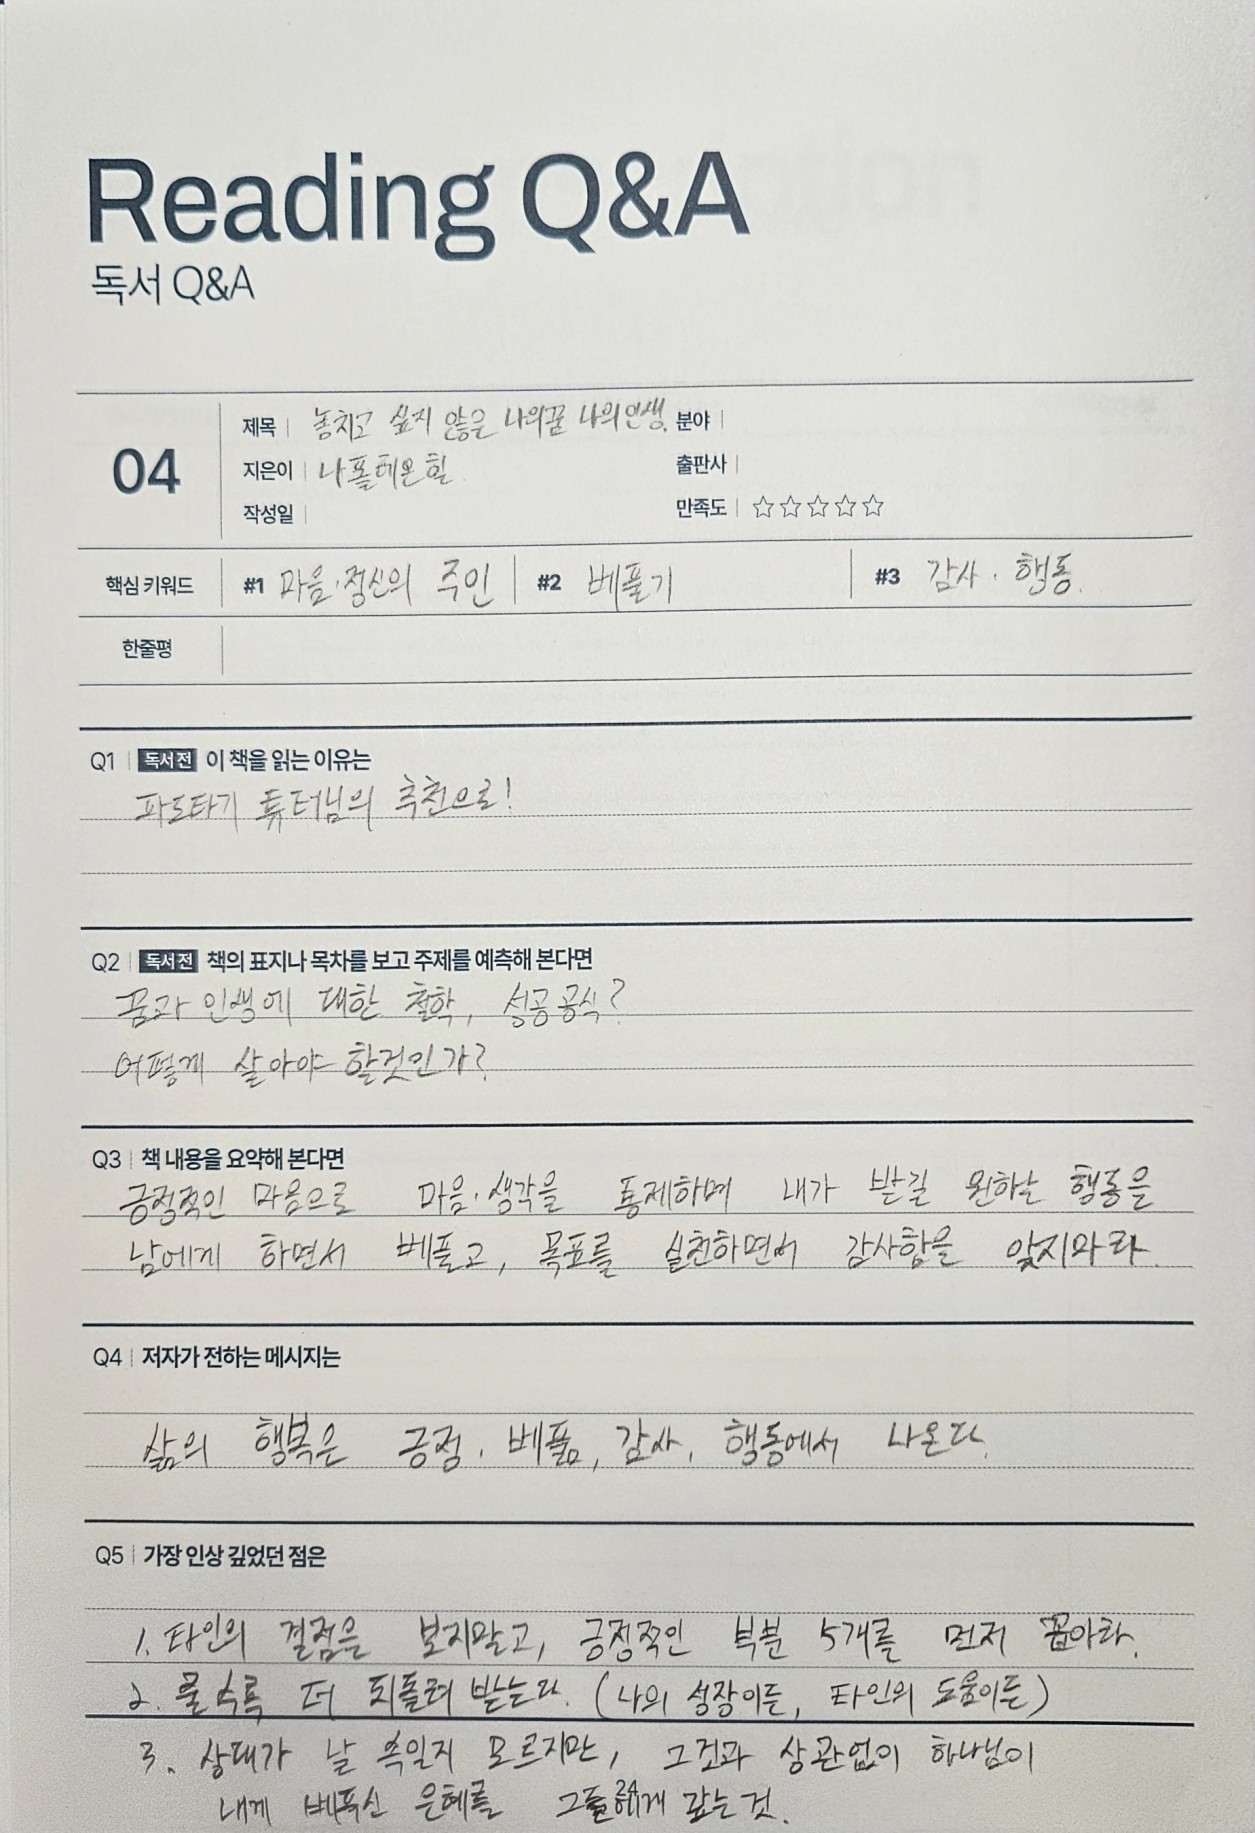 Reading Q&A
독서 Q&A
04
제목 | 놓치고 싶지 않은 나의꿈 나의인생. 분야 |
지은이 | 나폴레온힐 출판사 |
작성일 | 만족도 | ☆☆☆☆☆
핵심 키워드 #1 마음·정신의 주인 #2 베풀기 #3 감사 · 행동.
한줄평
Q1 | 독서 전 이 책을 읽는 이유는
파도타기 튜터님의 추천으로!
Q2 | 독서 전 책의 표지나 목차를 보고 주제를 예측해 본다면
꿈과 인생에 대한 철학, 성공공식?
어떻게 살아야 할것인가?
Q3 | 책 내용을 요약해 본다면
긍정적인 마음으로 마음·생각을 통제하며 내가 받길 원하는 행동을
남에게 하면서 베풀고, 목표를 실천하면서 감사함을 잊지마라.
Q4 | 저자가 전하는 메시지는
삶의 행복은 긍정, 베풂, 감사, 행동에서 나온다.
Q5 | 가장 인상 깊었던 점은
1. 타인의 결점을 보지말고, 긍정적인 부분 5개를 먼저 꼽아라.
2. 줄수록 더 되돌려 받는다. (나의 성장이든, 타인의 도움이든)
3. 상대가 날 속일지 모르지만, 그것과 상관없이 하나님이
내게 베푸신 은혜를 그들에게 갚는것.